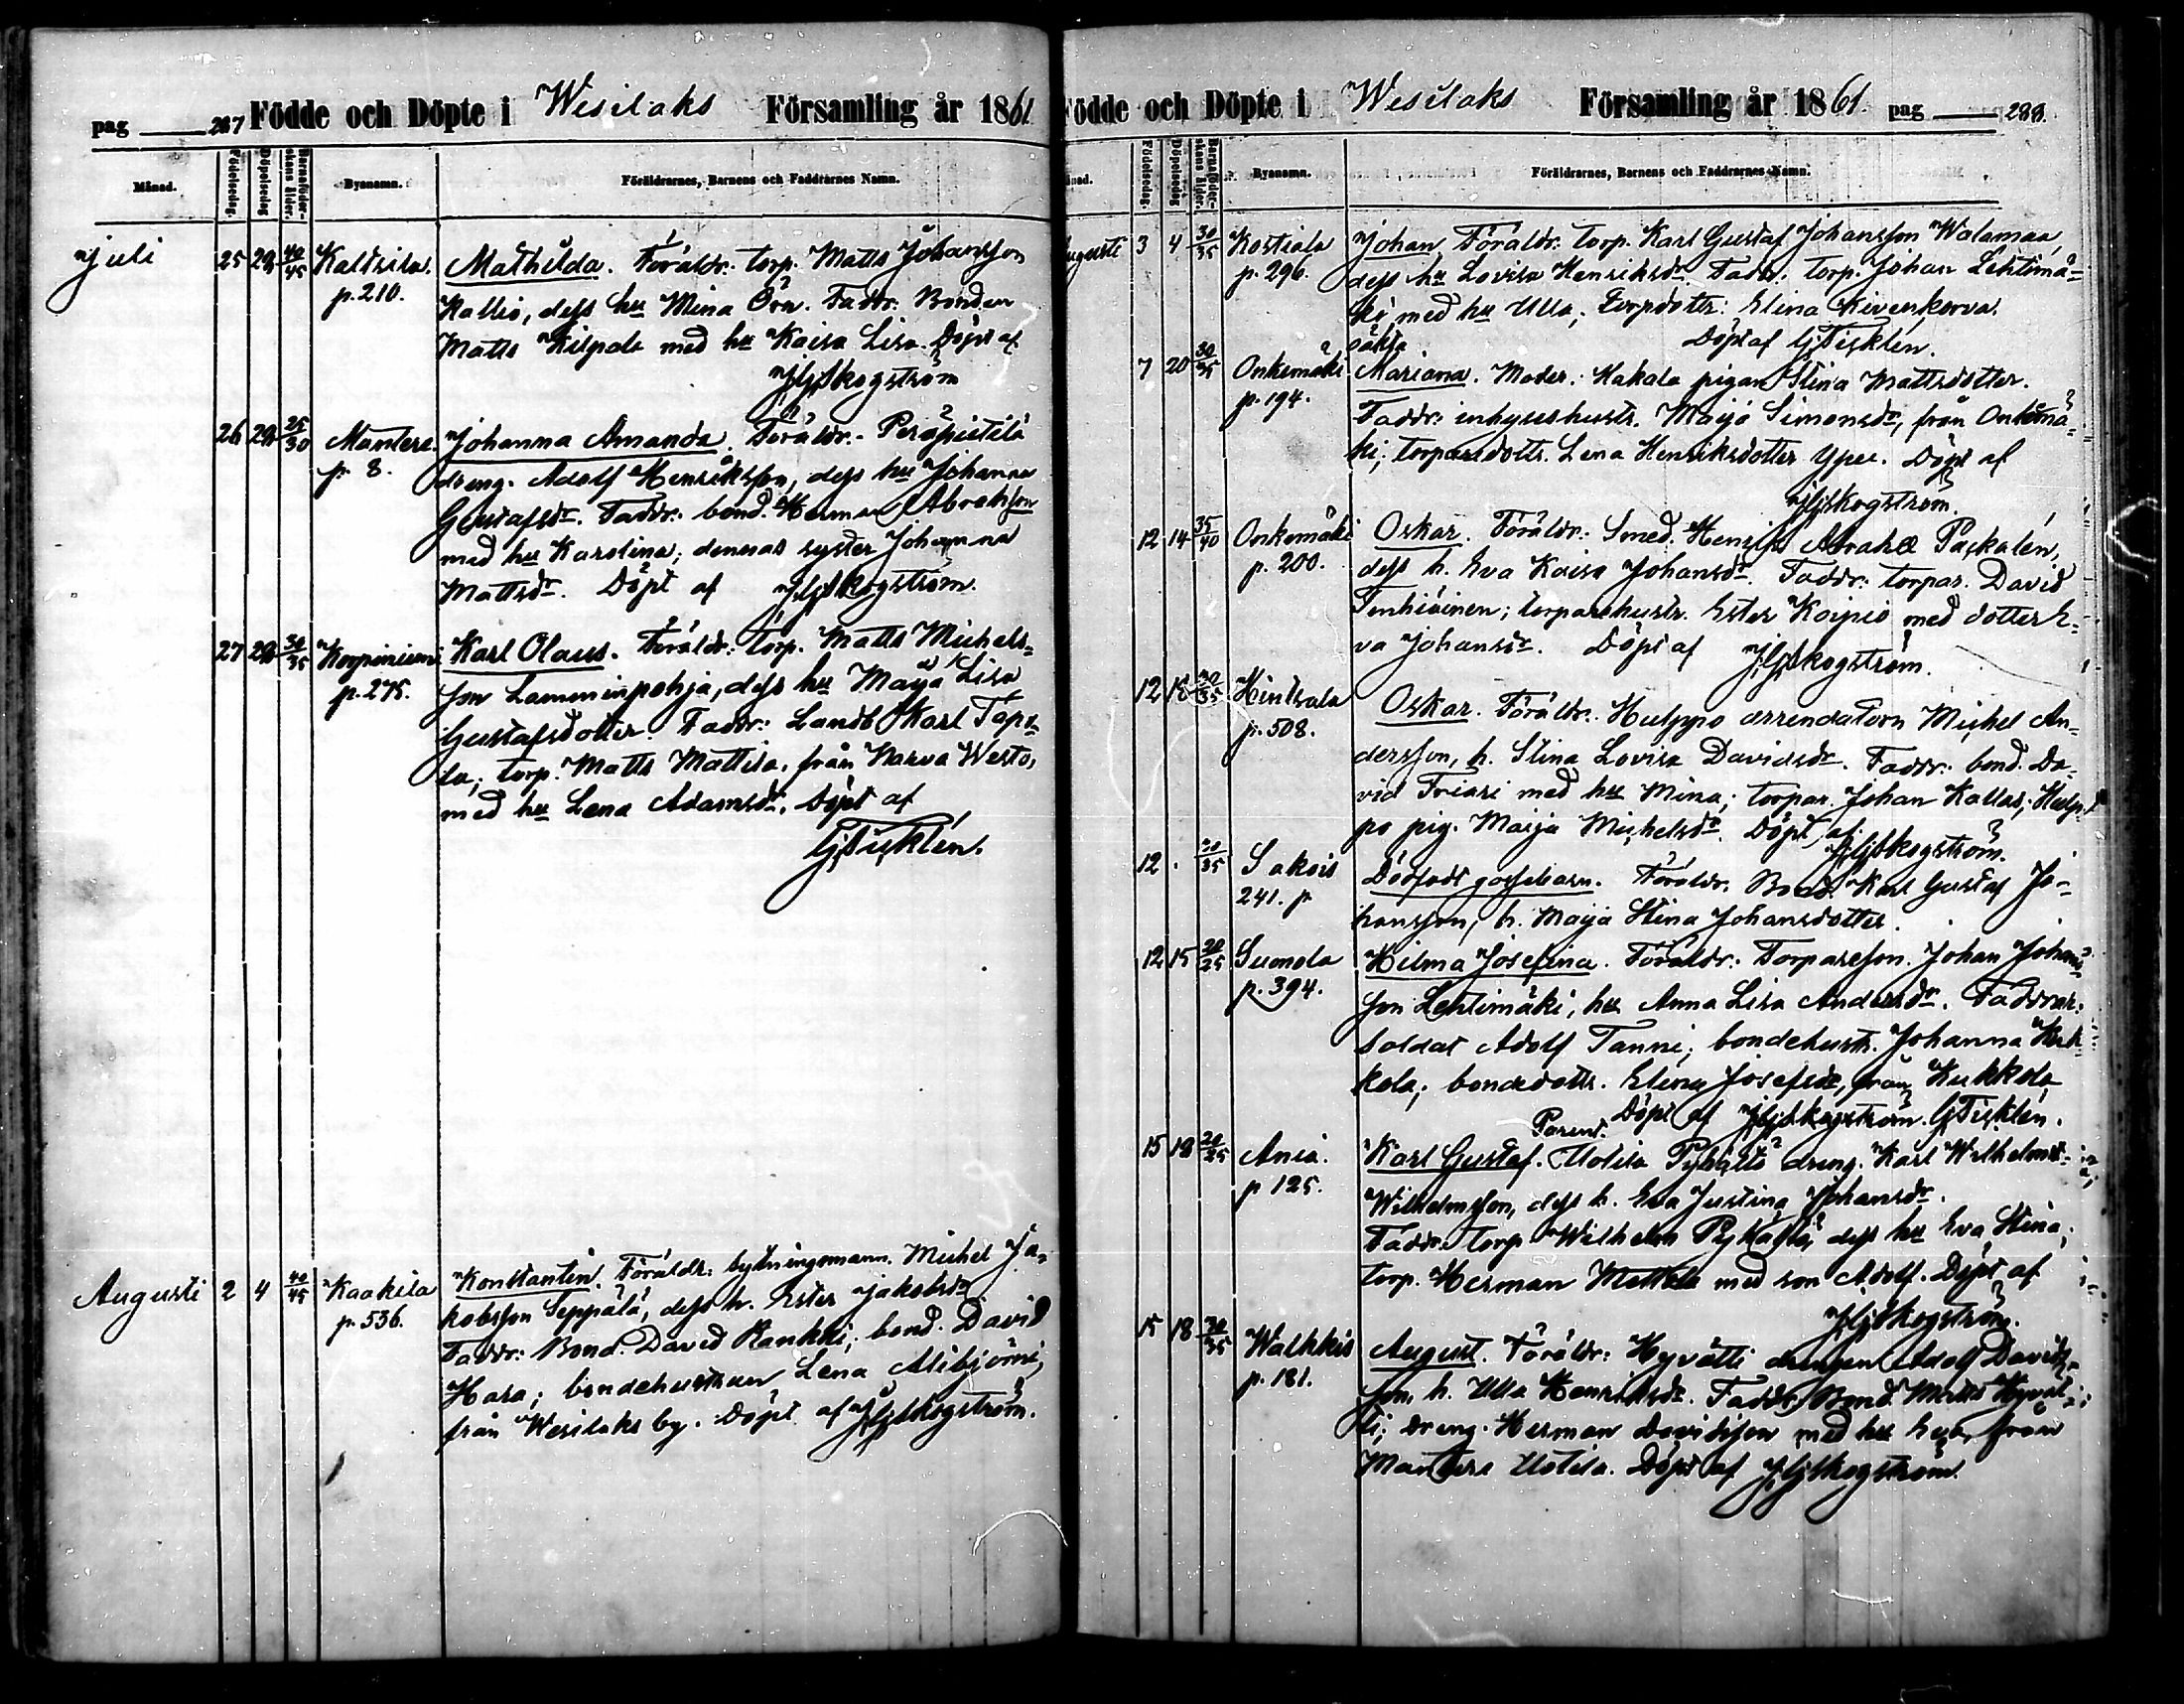 pag 287 Födde och Döpte i Wesilaks Församling år 1861
Månad. Födelsedag. Döpelsedag Barnaföder-skans ålder. Bynamn. Föräldrarnes, Barnens och Faddrarnes Namn.
Juli 25 29 40/45 Kaltsila. Mathilda. Föräldr: torp. Matts Johansson
p. 210. Kallio, dess hu Mina Örn. Faddr: Bonden
Matts Kilpala med hu Kaisa Lisa. Döpt af
JGSkogström
26 29 25/30 Mantere Johanna Amanda. Föräldr: Peräpietilä
p. 8. dreng. Adolf Henriksson, dess hu Johanna
Gustafsdr. Faddr: bond. Herman Abrahsson
med hu Karolina; dennas syster Johanna
Mattsdr. Döpt af JGSkogström.
27 29 30/35 Korpiniemi Karl Olaus. Föräldr: torp. Matts Michels-
p. 275. son Lamminpohja, dess hu Maja Lisa
Gustafsdotter. Faddr: Landb Karl Tapo-
la; torp. Matts Mattila, från Narva Westo,
med hu Lena Adamsdr. Döpt af
GTicklén.
Augusti 2 4 40/45 Kaakila Konstantin. Föräldr: sytningsmann. Michel Ja-
p. 536. kobsson Seppälä, dess h. Ester Jakobsdr
Faddr: Bond. David Hankki; bond. David
Hara; bondehustrun Lena Alibjörni,
från Wesilaks by. Döpt af JGSkogström.
Födde och Döpte i Wesilaks Församling år 1861. pag 288.
Månad. Födelsedag. Döpelsedag Barnaföder-skans ålder. Bynamn. Föräldrarnes, Barnens och Faddrarnes Namn.
Augusti 3 4 30/35 Kostiala Johan. Föräldr: torp. Karl Gustaf Johansson Walamaa,
p. 296. dess hu Lovisa Henriksdr. Faddr: torp. Johan Lehtimä-
ki med hu Ulla; torpdottr: Elina Kivenkorva.
oäkta Döpt af GTicklén.
7 20 30/35 Onkemäki Mariana. Moder: Hakala pigan Stina Mattsdotter.
p. 194. Faddr: inhyseshustr. Maijo Simonsdr, från Onkemä-
ki; torparedottr. Lena Henriksdotter Ypee. Döpt af
JGSkogström.
12 14 35/40 Onkemäki Oskar. Föräldr: Smed. Henrik Abrah Paskalén,
p. 200. dess h. Eva Kaisa Johansdr. Faddr: torpar. David
Tenhiäinen; torparehustr. Ester Koipio med dotter E-
va Johansdr. Döpt af JGSkogström.
12 15 30/35 Hinsala Oskar. Föräldr. Hulppo arrendatorn Michel An-
p. 508. dersson, h. Stina Lovisa Davidsdr. Faddr: bond. Da-
vid Friari med hu Mina; torpar. Johan Kallas; Hulp-
po pig. Maija Michelsdr. Döpt af JGSkogström.
12 . 30/35 Sakois Dödfödt gossebarn. Föräldr: Bond. Karl Gustaf Jo-
241. p hansson, h. Maija Stina Johansdotter.
12 15 20/25 Suomela Hilma Josefina. Föräldr: Torpareson. Johan Johans-
p. 394. son Lehtimäki, hu Anna Lisa Andersdr. Faddrar:
Soldat Adolf Tanni; bondehustr. Johanna Kuk-
kola; bondedottr. Elina Josefsdr, från Kukkola
Döpt af JGSkogström. GTicklén.
Parent.
15 18 20/25 Ania. Karl Gustaf. Uotila Pyhältö dreng. Karl Wilhelm
p 125. Wilhelmsson, dess h. Eva Justina Johansdr.
Faddr: torp Wilhelm Pyhältö, dess hu Eva Stina;
torp. Herman Mattila med son Adolf. Döpt af
JGSkogström.
15 18 30/35 Walkkis August. Föräldr: Hyvätti drengen Adolf Davids-
p. 181. son, h. Ulla Henriksdr. Faddr: Bond. Matts Hyvät-
ti; dreng. Herman Davidsson med hu Eva, från
Mantere Uotila. Döpt af JGSkogström.